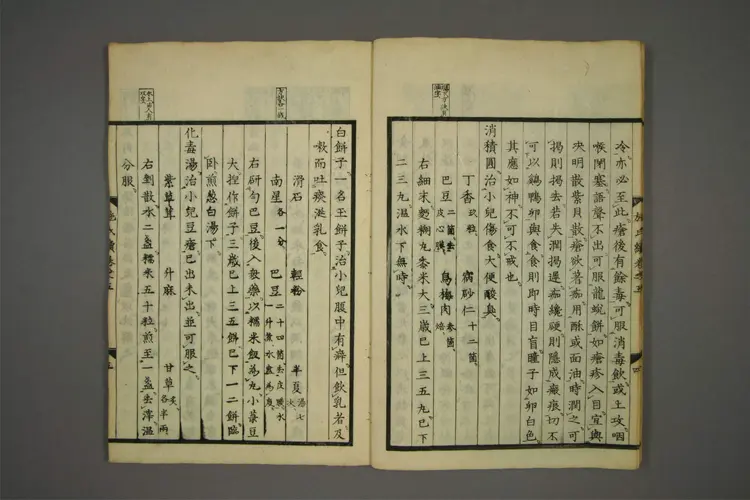 冷亦必至此瘡後有餘毒可服消毒飲或土攻咽
喉閉塞語聲不出可服龍蛻餅如瘡疹入目宜與
決明散葉貝散瘡欲著痂用酥或面油時潤之可
揭則揭去若失潤揭遲痂纔硬則隱成瘢痕切不
可以鷄鴨卵與食食則即時目盲瞳子如卵白色
其應如神不可不戒也
消積圓治小兒傷食大便酸臭
丁香 縮砂仁十二箇
巴豆二箇去皮心膜 烏梅肉叁箇焙
右細末麪糊丸黍米大三歲已上三五丸已下
二三丸溫水下無時
施氏續卷之五
四
白餅子一名玉餅子治小兒腹中有癖但飲乳者及
嗽而吐痰涎乳食
滑石 輕粉 半夏湯七次
南星各一分 巴豆二十四箇去皮膜水一升煮水盡為度
右研勻巴豆後入衆藥以糯米飯為丸小菉豆
大捏作餅子三歲已上三五餅已下一二餅臨
臥煎蔥白湯下
化毒湯治小兒豆瘡已出未出並可服之
紫草茸 升麻 甘草炙各半兩
右剉散水二盞糯米五十粒煎至一盞去滓溫
分服
施氏續卷之五
五